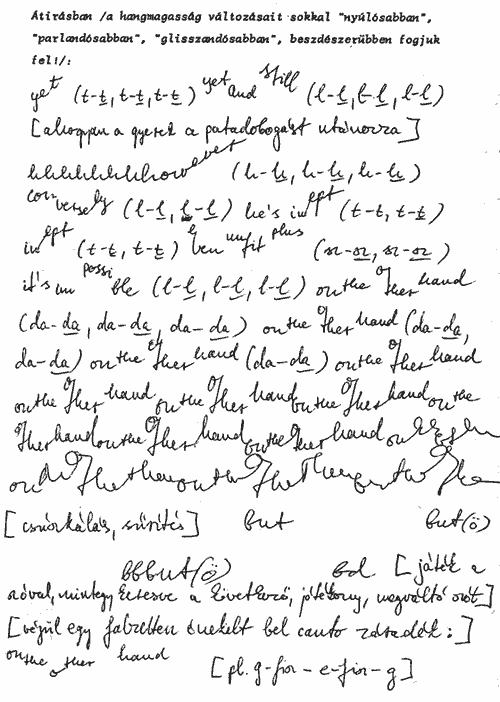 Átirásban /a hangmagasság változásait sokkal "nyúlósabban",
"parlandósabban", "glisszandósabban", beszédszerübben fogjuk
fel!/:
yet (t-t, t-t, t-t) yet and still (l-l, l-l, l-l)
[ahogyan a gyerek a patadobogást utánozza]
hhhhhhhhhowever (h-h, h-h, h-h)
conversely (l-l, l-l) he's inept (t-t, t-t)
inept (t-t, t-t) ben unfit plus
it's impossible (l-l, l-l, l-l) on the other hand
(da-da, da-da, da-da) on the other hand (da-da,
da-da) on the other hand (da-da) on the other hand
on the other hand on the other hand on the other hand on the
other hand on the other hand on the other hand on
on
[csúszkálás, sűrítés] but but(ö)
bbbut(ö) bd. [játék a
szóval, mintegy keresve a következő, jótékony, megváltó szót]
[végül egy falzettben énekelt bel canto záradék:]
on the other hand [pl. g-fisz-e-fisz-g]